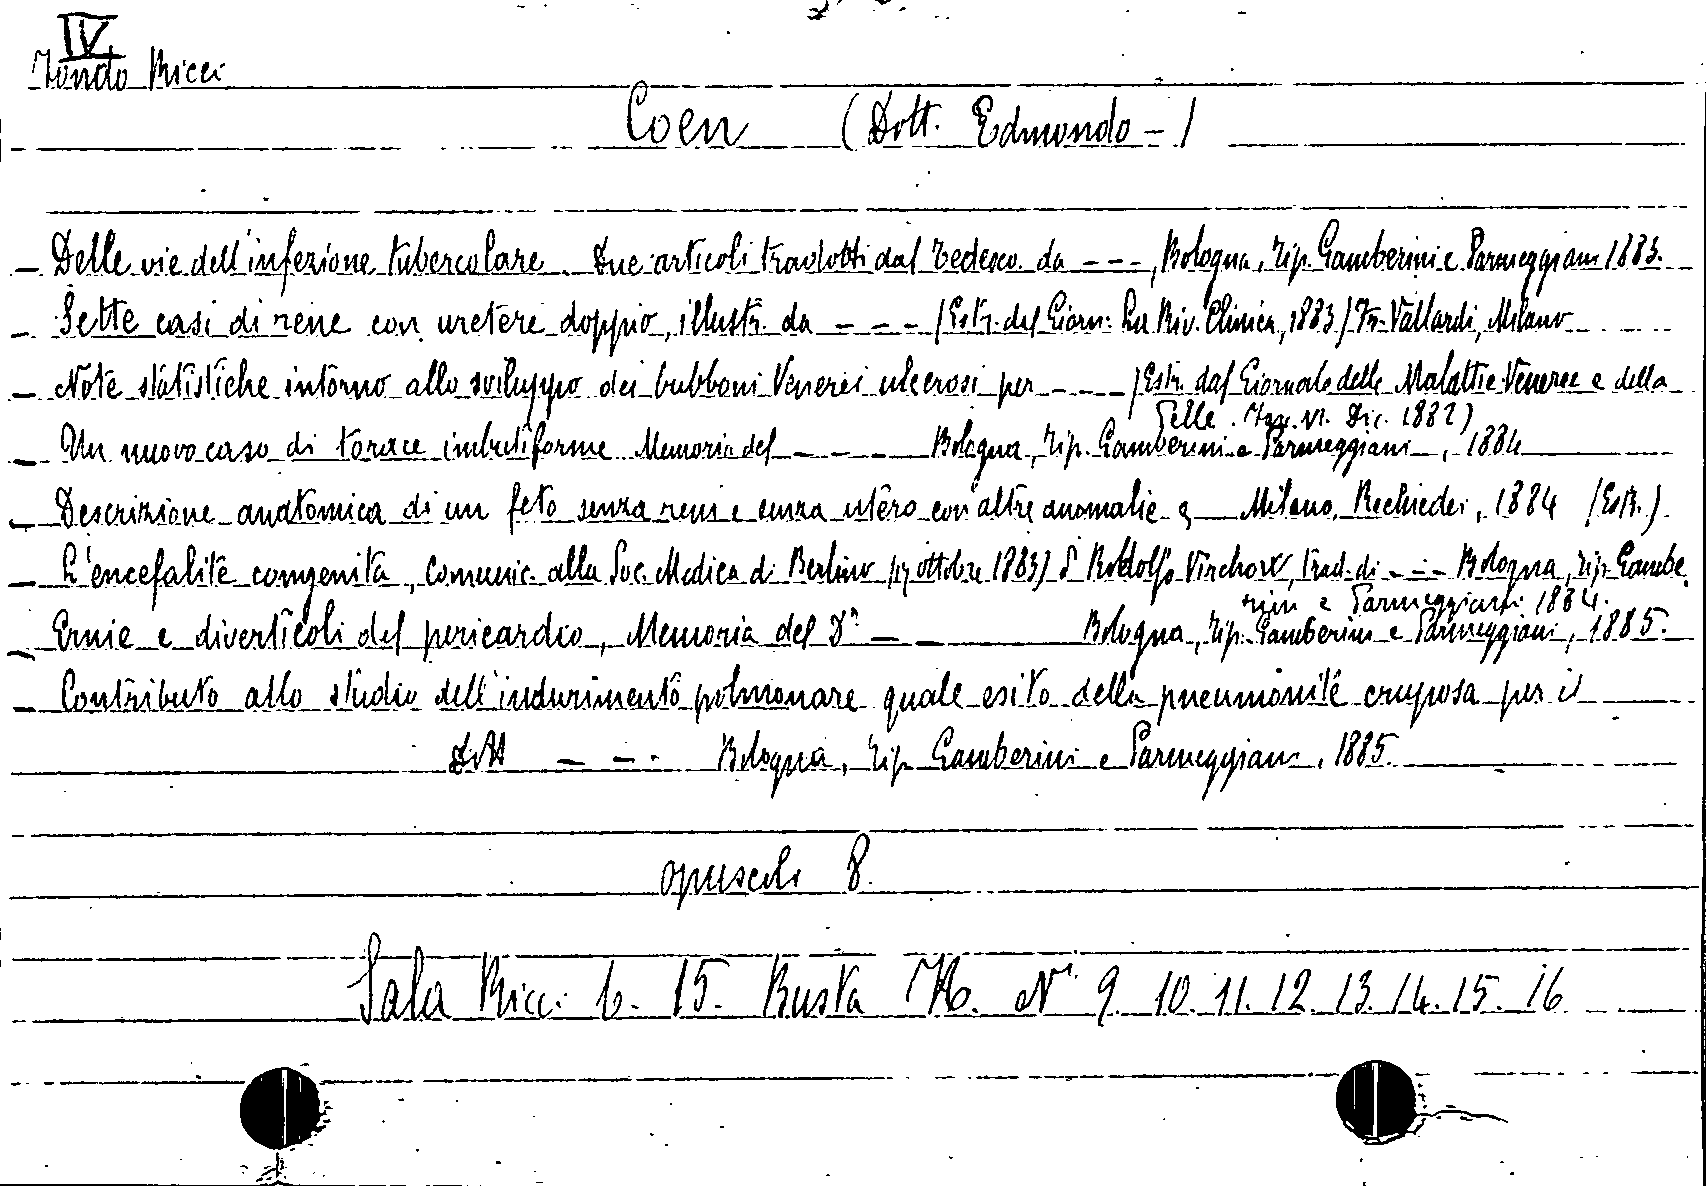 IV.
Fondo Ricci
Coen (Dott. Edmondo - )
- Delle vie dell'infezione tubercolare. Due articoli tradotti dal tedesco da - - -, Bologna, Tip. Gamberini e Parmeggiani 1883.
- Sette casi di rene con uretere doppio, illustr. da - - - (Estr. del Giorn: La Riv. Clinica, 1883) Fr. Vallardi, Milano
- Note statistiche intorno allo sviluppo dei bubboni Venerei ulcerosi per - - - (Estr. dal Giornale delle Malattie Veneree e della
Pelle. Fasc. VI. Dic. 1882)
- Un nuovo caso di torace imbutiforme Memoria del - - - Bologna, Tip. Gamberini e Parmeggiani, 1884
- Descrizione anatomica di un feto senza reni e senza utero con altre anomalie & Milano, Rechiedei, 1884 (Estr.)
- L'encefalite congenita, comunic. alla Soc. Medica di Berlino (17 ottobre 1883) di Rodolfo Virchow, trad. di - - - Bologna, Tip. Gambe-
rini e Parmeggiani 1884.
- Ernie e diverticoli del pericardio, Memoria del Dr - - Bologna, Tip. Gamberini e Parmeggiani, 1885.
- Contributo allo studio dell'indurimento polmonare quale esito della pneumonite cruposa per il
Dott - - - Bologna, Tip. Gamberini e Parmeggiani, 1885.
opuscoli 8.
Sala Ricci 6. 15. Busta N. 9. 10. 11. 12. 13. 14. 15. 16